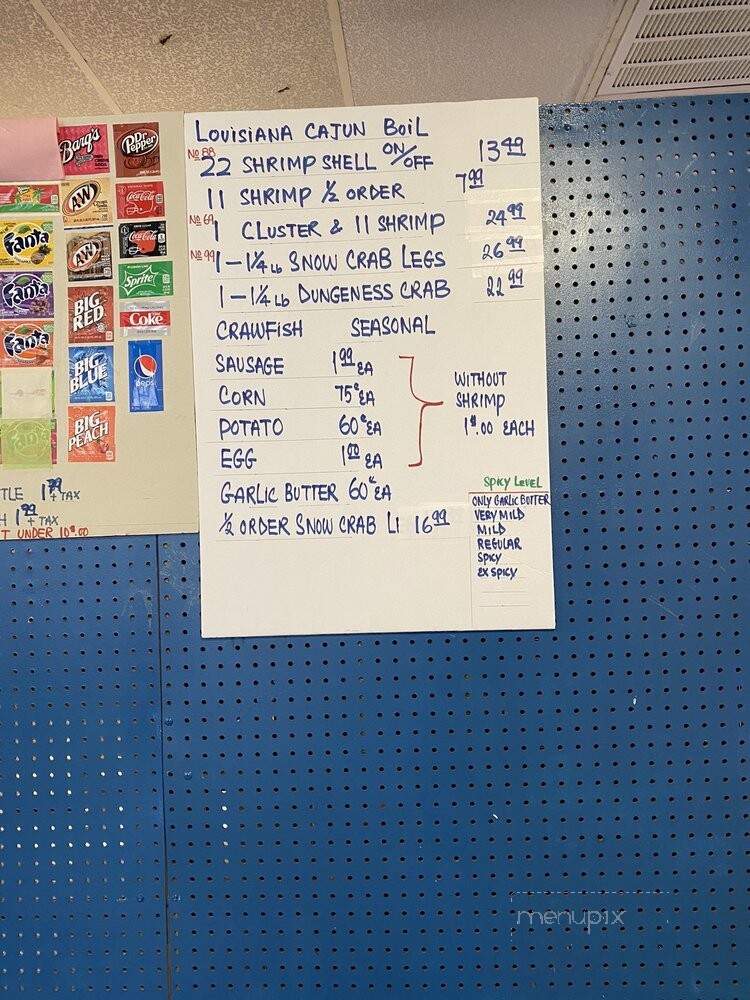 LOUISIANA CAJUN BOIL
No 88
22 SHRIMP SHELL ON/OFF 13 49
11 SHRIMP 1/2 ORDER 7 99
No 69
1 CLUSTER & 11 SHRIMP 24 99
No 99
1-1 1/4 Lb SNOW CRAB LEGS 26 99
1-1 1/4 Lb DUNGENESS CRAB 22 99
CRAWFISH SEASONAL
SAUSAGE 1 99 EA
CORN 75¢ EA
POTATO 60¢ EA
EGG 1 00 EA
WITHOUT
SHRIMP
1$.00 EACH
GARLIC BUTTER 60¢ EA
1/2 ORDER SNOW CRAB L1 16 99
SPICY LEVEL
ONLY GARLIC BUTTER
VERY MILD
MILD
REGULAR
SPICY
EX SPICY
Barq's
Dr Pepper
A&W
Coca-Cola
Fanta
A&W
Coca-Cola
Fanta
BIG RED
Sprite
Coke
Fanta
BIG BLUE
pepsi
BIG PEACH
TLE 1 79 + TAX
H 1 99 + TAX
T UNDER 10$.00
menupix